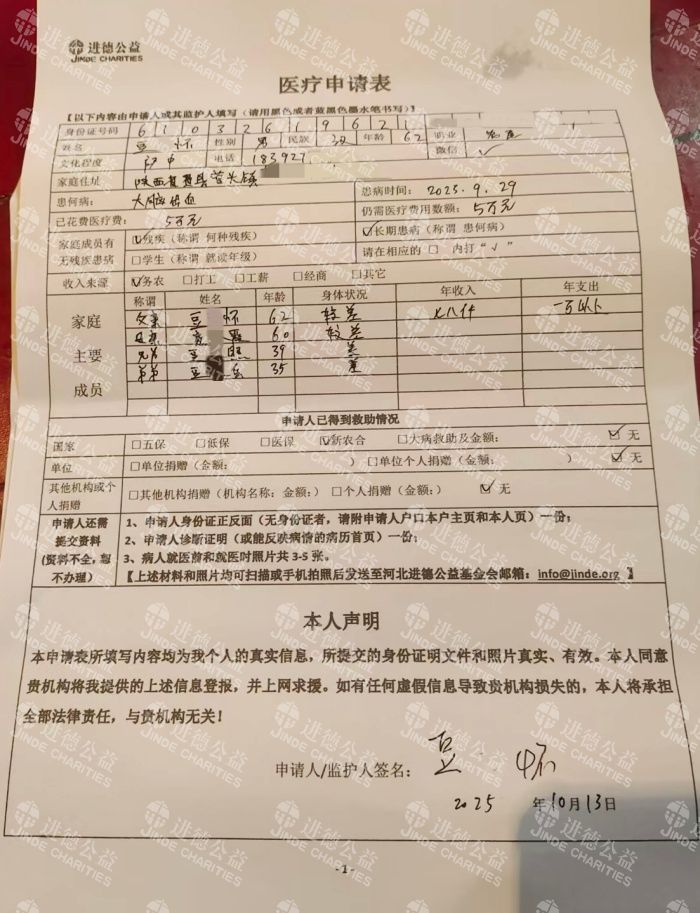 进德公益
JINDE CHARITIES
医疗申请表
【以下内容由申请人或其监护人填写（请用黑色或者蓝黑色墨水笔书写）】
身份证号码 6 1 0 3 2 6 1 9 6 2 1
姓名 豆 怀 性别 男 民族 汉 年龄 62 职业 农民
文化程度 初中 电话 183927 微信 ✓
家庭住址 陕西省眉县首关镇 患病时间：2025.9.29
患何病：大脑出血 仍需医疗费用数额：5万元
已花费医疗费：5万元 ☑长期患病（称谓 患何病）
家庭成员有无残疾患病 ☑残疾（称谓 何种残疾） 请在相应的 □ 内打“√”
□学生（称谓 就读年级）
收入来源 ☑务农 □打工 □工薪 □经商 □其它
家庭主要成员 称谓 姓名 年龄 身体状况 年收入 年支出
父亲 豆 怀 62 较差 七八仟 一万以下
母亲 60 较差
兄弟 豆 39
弟弟 豆 35
申请人已得到救助情况
国家 □五保 □低保 □医保 ☑新农合 □大病救助及金额： ☑ 无
单位 □单位捐赠（金额： ） □单位个人捐赠（金额： ） ☑ 无
其他机构或个人捐赠 □其他机构捐赠（机构名称：金额：） □个人捐赠（金额：） ☑ 无
申请人还需提交资料（资料不全，恕不办理）
1、申请人身份证正反面（无身份证者，请附申请人户口本户主页和本人页）一份；
2、申请人诊断证明（或能反映病情的病历首页）一份；
3、病人就医前和就医时照片共 3-5 张。
【上述材料和照片均可扫描或手机拍照后发送至河北进德公益基金会邮箱：info@jinde.org 】
本人声明
本申请表所填写内容均为我个人的真实信息，所提交的身份证明文件和照片真实、有效。本人同意
贵机构将我提供的上述信息登报，并上网求援。如有任何虚假信息导致贵机构损失的，本人将承担
全部法律责任，与贵机构无关！
申请人/监护人签名： 豆 怀
2025 年10月13日
- 1 -